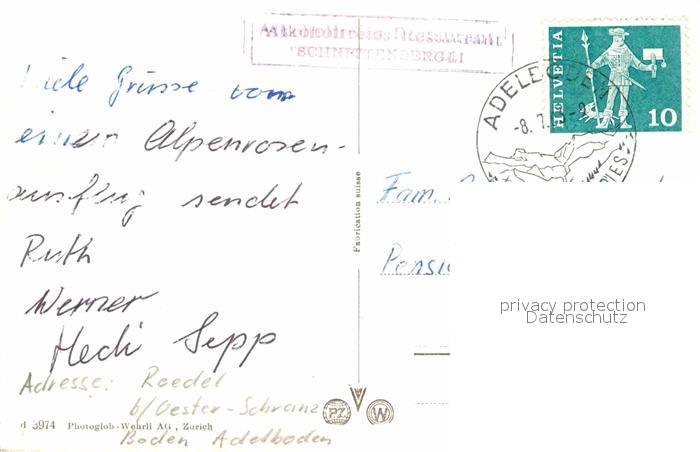 Alkoholfreies Restaurant
SCHNITTENBERGLI
HELVETIA
10
ADELBODEN
-8.7.
Viele Grüsse vom
einem Alpenrosen-
ausflug sendet
Ruth
Werner
Hedi Sepp
Adresse: Roedel
b/Oester-Schranz
Boden Adelboden
Fam.
Pensio
Fabrication suisse
privacy protection
Datenschutz
PZ
W
d 3974 Photoglob-Wehrli AG, Zurich